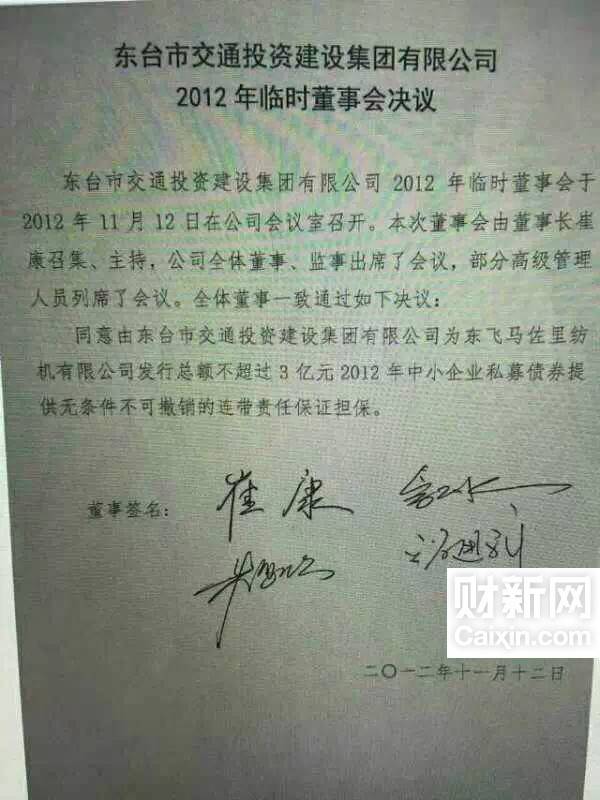 东台市交通投资建设集团有限公司
2012 年临时董事会决议
东台市交通投资建设集团有限公司 2012 年临时董事会于
2012 年 11 月 12 日在公司会议室召开。本次董事会由董事长崔
康召集、主持，公司全体董事、监事出席了会议，部分高级管理
人员列席了会议。全体董事一致通过如下决议：
同意由东台市交通投资建设集团有限公司为东飞马佐里纺
机有限公司发行总额不超过 3 亿元 2012 年中小企业私募债券提
供无条件不可撤销的连带责任保证担保。
董事签名：
崔康
财新网
Caixin.com
二〇一二年十一月十二日